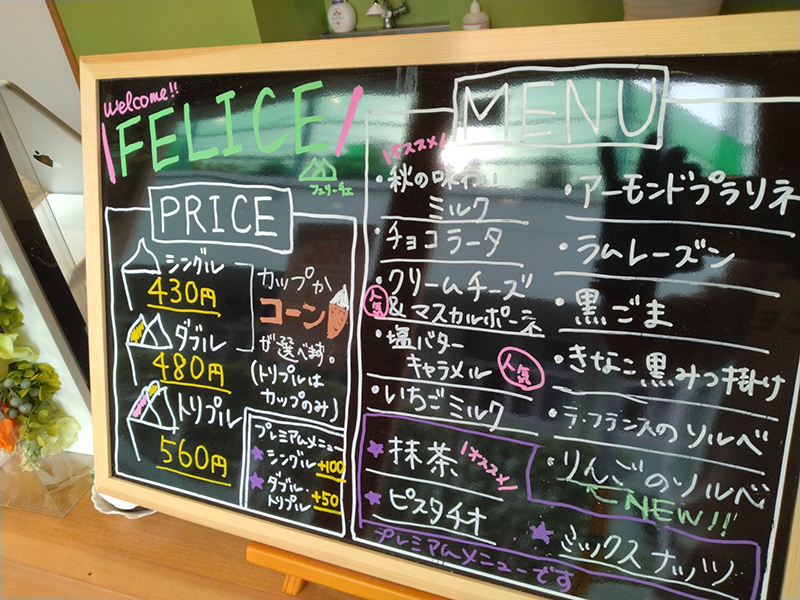 welcome!!
FELICE
フェリーチェ
PRICE
シングル
430円
ダブル
480円
トリプル
560円
カップか
コーン
が選べます。
(トリプルは
カップのみ)
プレミアムメニュー
シングル +100
ダブル
トリプル +50
MENU
オススメ!
・秋の味わい
ミルク
・チョコラータ
・クリームチーズ
人気
&マスカルポーネ
・塩バター
キャラメル
人気
・いちごミルク
抹茶
オススメ!
ピスタチオ
プレミアムメニューです
・アーモンドプラリネ
・ラムレーズン
・黒ごま
・きなこ黒みつ掛け
・ラ・フランスのソルベ
・りんごのソルベ
NEW!!
ミックスナッツ